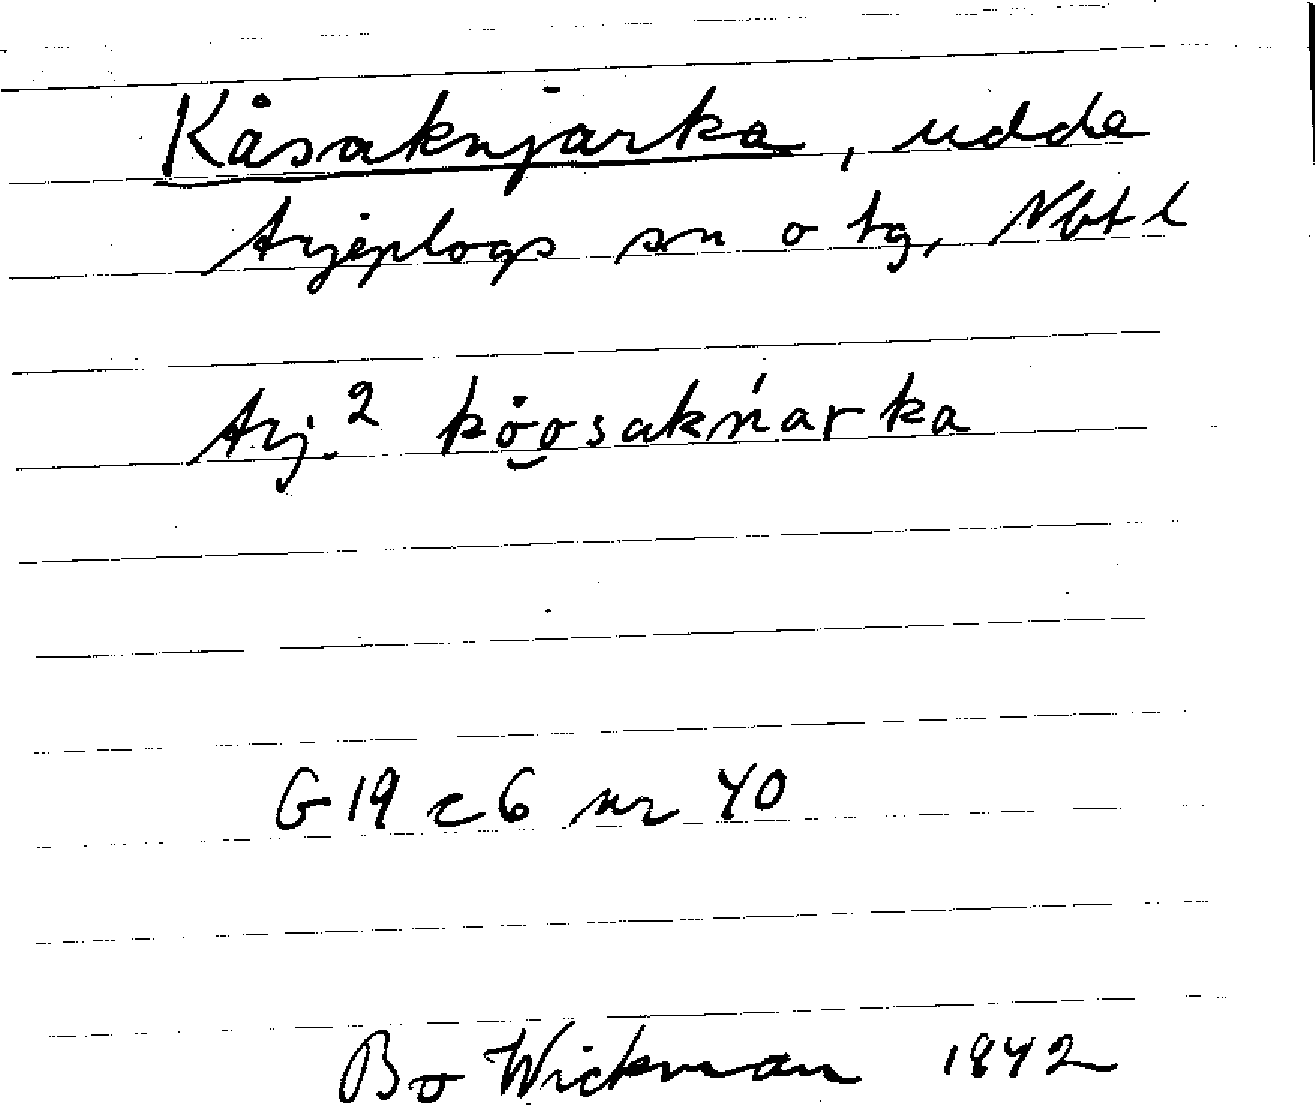 Kåsaknjarka, udde
Arjeplogs sn o tg, Nbt l
Arj.² kȯ͜osakńarka
G 19 c 6 nr 40
Bo Wickman 1942